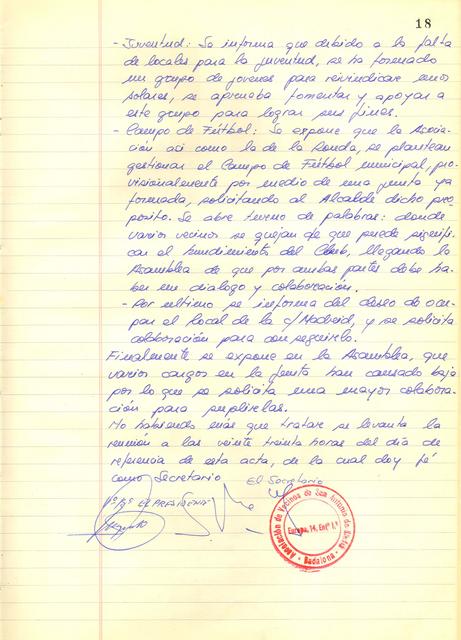 18
- Juventud: Se informa que debido a la falta
de locales para la juventud, se ha formado
un grupo de jovenes para reivindicar unos
solares, se aprueba fomentar y apoyar a
este grupo para lograr sus fines.
- Campo de Fútbol: Se expone que la Asocia-
ción asi como la de la Ronda, se plantean
gestionar el Campo de Fútbol municipal, pro-
visionalmente por medio de una junta ya
formada, solicitando al Alcalde dicho pro-
posito. Se abre turno de palabras: donde
varios vecinos se quejan de que puede significa-
car el hundimiento del Club, llegando la
Asamblea de que por ambas partes debe ha-
ber un dialogo y colaboración.
- Por ultimo se informa del deseo de ocu-
par el local de la c/Madrid, y se solicita
colaboración para conseguirlo.
Finalmente se expone en la Asamblea, que
varios cargos en la Junta han causado baja
por lo que se solicita una mayor colabora-
ción para suplirlas.
No habiendo más que tratar se levanta la
reunión a las veinte treinta horas del día de
referencia de esta acta, de la cual doy fé
como Secretario
El Secretario
Vº Bº EL PRESIDENTE
Asociación de Vecinos de San Antonio de Llefià
Europa, 14, Entº 1ª
- Badalona -